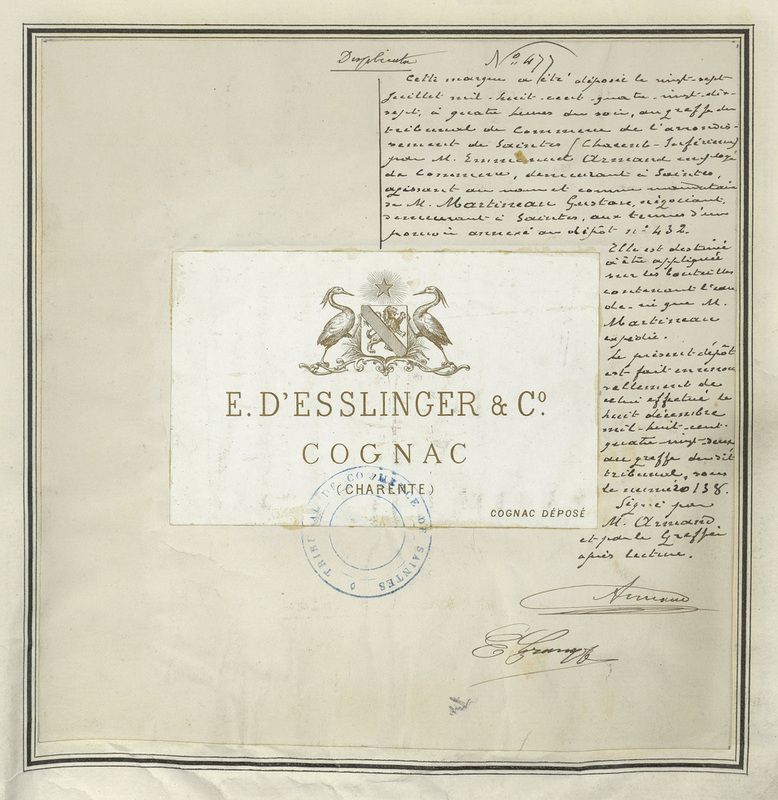 Duplicata
No. 477
Cette marque a été déposée le vingt-sept
juillet mil-huit-cent-quatre-vingt-dix-
sept, à quatre heures du soir, au greffe du
tribunal de Commerce de l'arrondis-
sement de Saintes (Charente-Inférieure)
par M. Emmanuel Armand employé
de Commerce, demeurant à Saintes,
agissant au nom et comme mandataire
de M. Martineau Gustave, négociant,
demeurant à Saintes, aux termes d'un
pouvoir annexé au dépôt no 432.
Elle est destinée
à être appliquée
sur les bouteilles
contenant l'eau
de-vie que M.
Martineau
expédie.
Le présent dépôt
est fait en renou
vellement de
celui effectué le
huit décembre
mil-huit-cent-
quatre-vingt-deux
au greffe du dit
tribunal, sous
le numéro 138.
Signé par
M. Armand
et par le Greffier
après lecture.
E. D'ESSLINGER & Co.
COGNAC
(CHARENTE)
COGNAC DÉPOSÉ
TRIBUNAL DE COMMERCE DE SAINTES
Armand